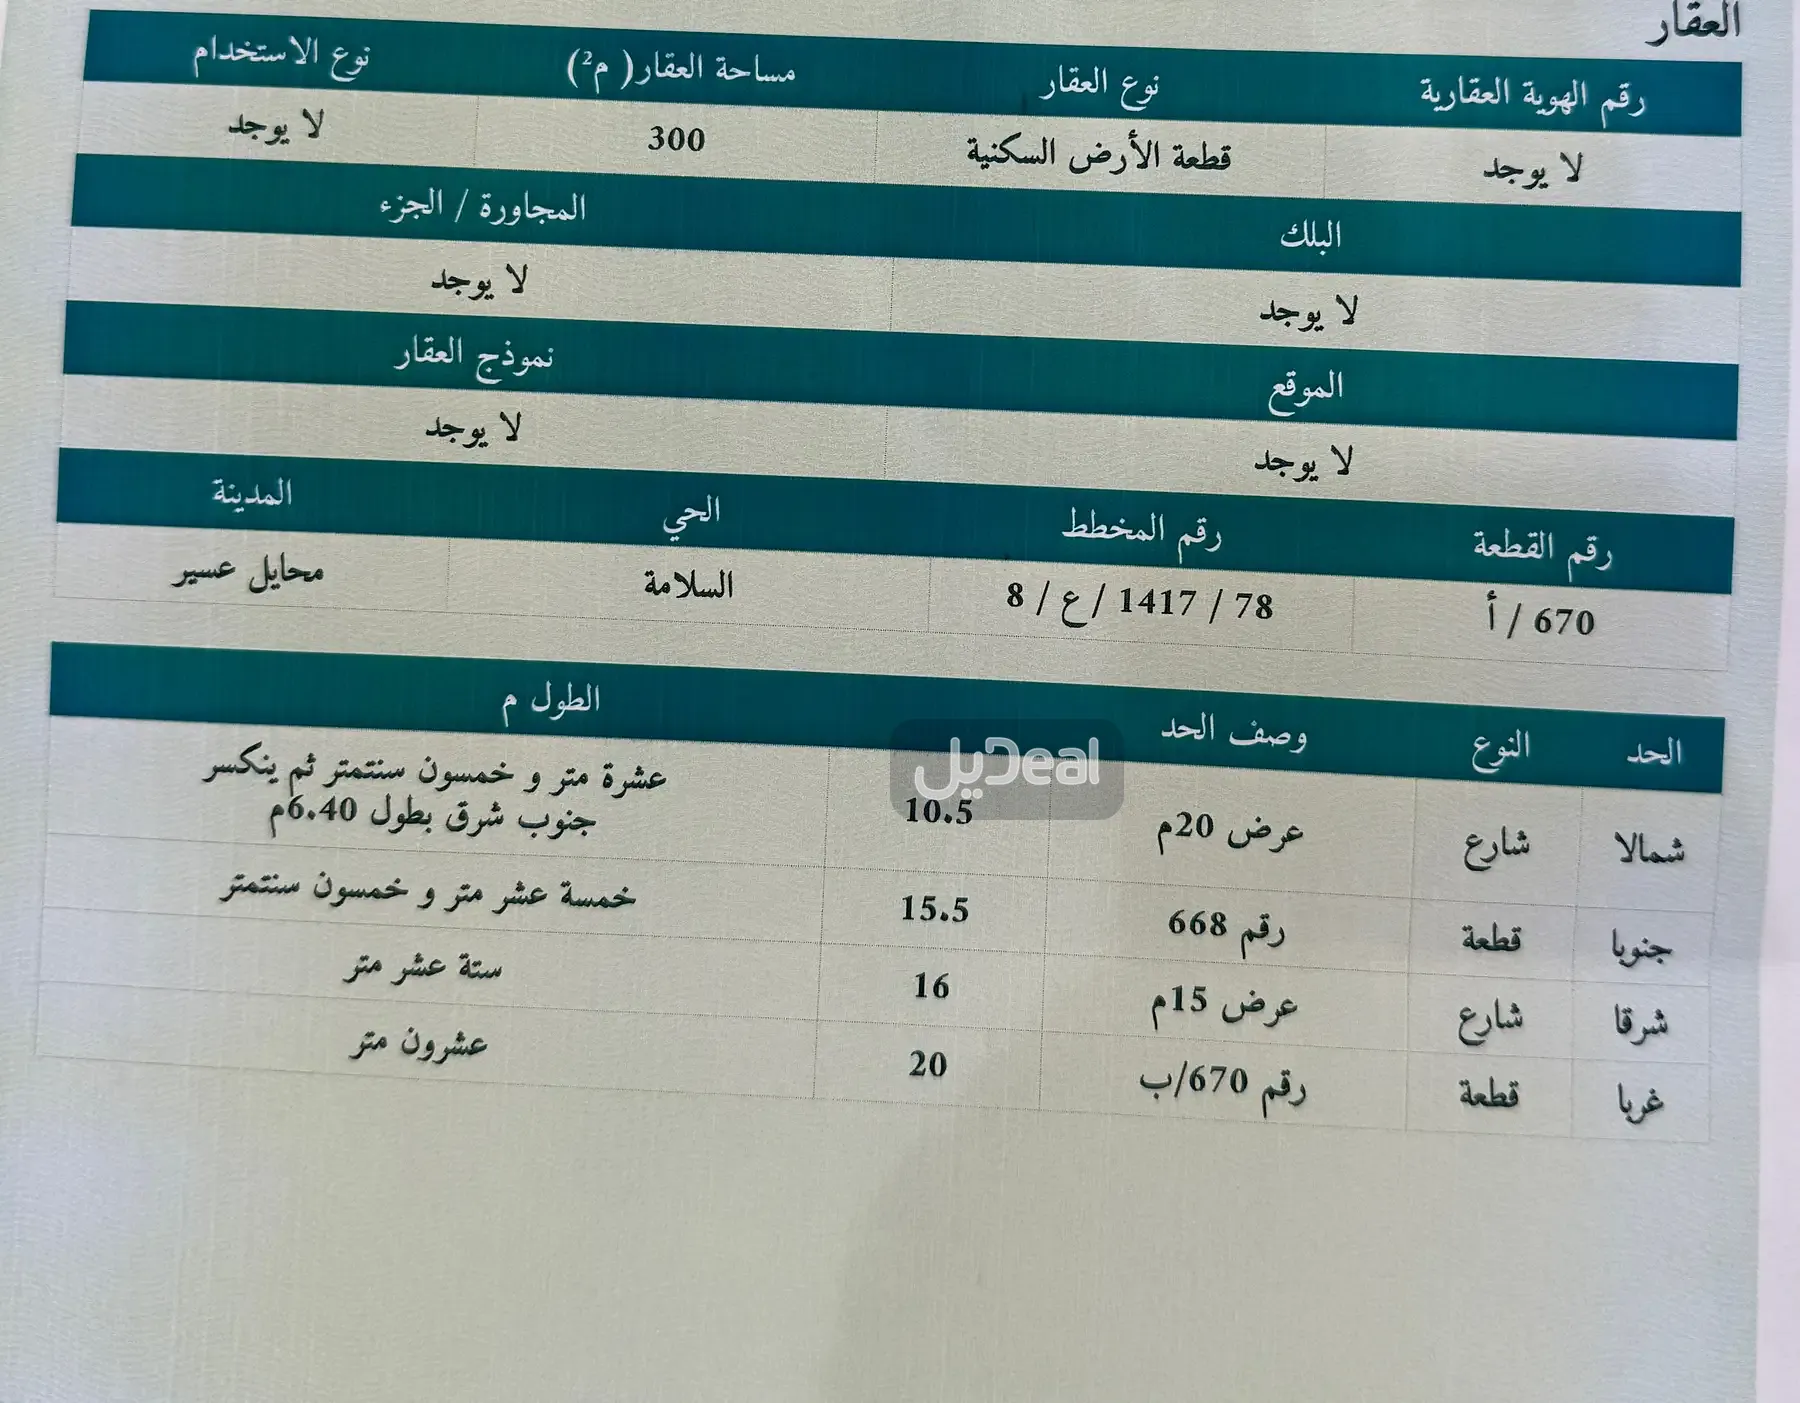 العقار
رقم الهوية العقارية نوع العقار مساحة العقار( م²) نوع الاستخدام
لا يوجد قطعة الأرض السكنية 300 لا يوجد
البلك المجاورة / الجزء
لا يوجد لا يوجد
الموقع نموذج العقار
لا يوجد لا يوجد
رقم القطعة رقم المخطط الحي المدينة
670 / أ 78 / 1417 / ع / 8 السلامة محايل عسير
الحد النوع وصف الحد الطول م
ديل Deal
شمالا شارع عرض 20م 10.5 عشرة متر و خمسون سنتمتر ثم ينكسر
جنوب شرق بطول 6.40م
جنوبا قطعة رقم 668 15.5 خمسة عشر متر و خمسون سنتمتر
شرقا شارع عرض 15م 16 ستة عشر متر
غربا قطعة رقم 670/ب 20 عشرون متر